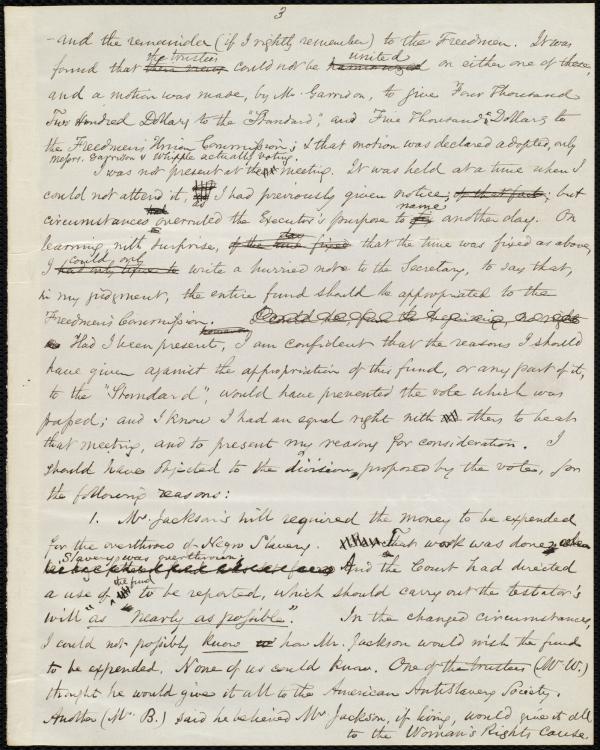 3
- and the remainder (if I rightly remember) to the Freedmen. It was
the trustees united
found that their views could not be harmonized on either one of these,
and a motion was made, by Mr Garrison, to give Four Thousand
Two Hundred Dollars to the "Standard", and Five Thousand Dollars to
the Freedmen's Union Commission; & that motion was declared adopted, only
Messrs. Garrison & Whipple actually voting.
I was not present at the meeting. It was held at a time when I
could not attend it, as I had previously given notice, of that fact; but
circumstances had overruled the Executor's purpose to name another day. On
day
learning, with surprise, of the time fixed that the time was fixed as above,
could only
I had only time to write a hurried note to the Secretary, to say that,
in my judgment, the entire fund should be appropriated to the
Freedmen's Commission.
however
Had I been present, I am confident that the reasons I should
have given against the appropriation of this fund, or any part of it,
to the "Standard", would have prevented the vote which was
passed; and I know I had an equal right with others to be at
that meeting, and to present my reasons for consideration. I
should have objected to the division proposed by the vote, for
the following reasons:
1. Mr. Jackson's will required the money to be expended
for the overthrow of Negro Slavery. That work was done, when
Slavery was overthrown;
And the Court had directed
the fund
a use of to be reported, which should carry out the testator's
will "as nearly as possible." In the changed circumstances,
I could not possibly know how Mr. Jackson would wish the fund
to be expended. None of us could know. One of the trustees (Mr W.)
thought he would give it all to the American AntiSlavery Society.
Another (Mr. B.) said he believed Mr Jackson, if living, would give it all
to the Woman's Rights cause.